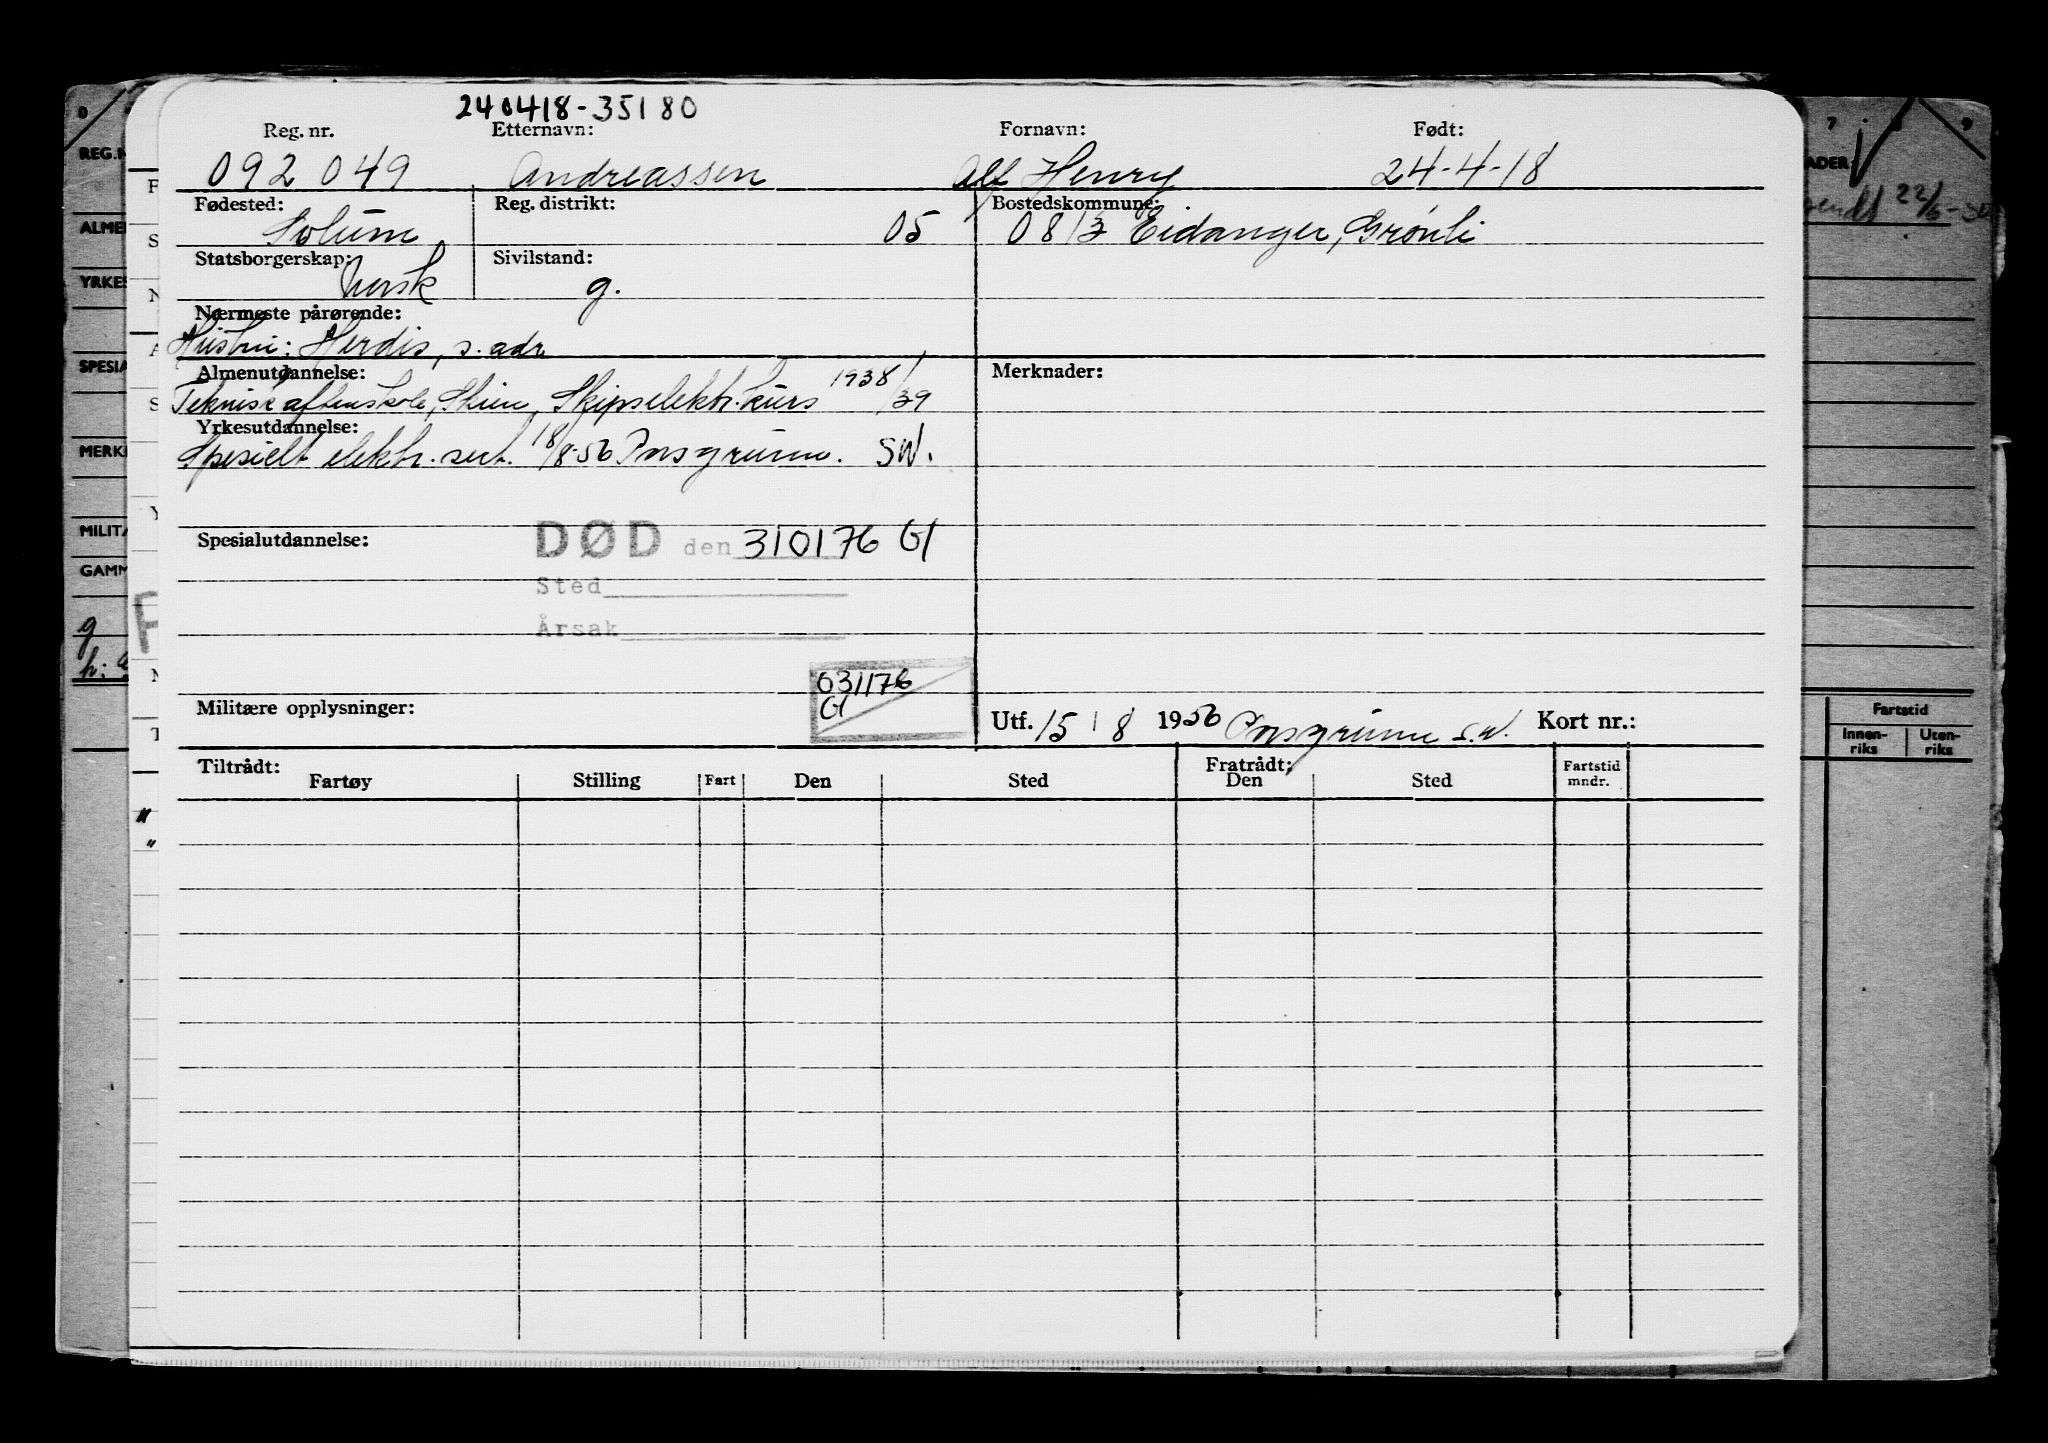 240418-35180
Reg. nr. Etternavn: Fornavn: Født:
092 049 Andreassen Alf Henry 24-4-18
Fødested: Reg. distrikt: Bostedskommune:
Solum 05 0813 Eidanger, Grønli
Statsborgerskap: Sivilstand:
Norsk g.
Nærmeste pårørende:
Hustru: Herdis, s. adr.
Almenutdannelse: Merknader:
Teknisk aftenskole, Skien, Skipselektr. kurs 1938/39
Yrkesutdannelse:
Spesielt elektr. sert. 18/8-56 Porsgrunn. SW.
Spesialutdannelse: DØD den 310176 GI
Sted
Årsak
031176
GI
Militære opplysninger: Utf. 15/8 1956 Porsgrunn S.W. Kort nr.:
Tiltrådt: Fratrådt:
Fartøy Stilling Fart Den Sted Den Sted Fartstid mndr.
0
REG.N
ALMEN
YRKES
SPESIA
MERK
MILITÆ
GAMM
g
h:
F
S
N
A
S
Y
N
T
"
"
7 9
ADER:
22/
Fartstid
Innen-riks Uten-riks